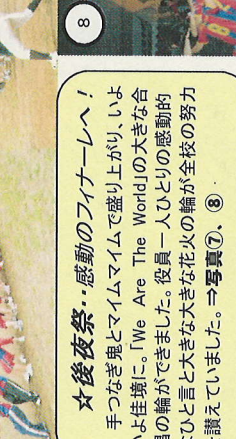 ⑧
☆後夜祭‥感動のフィナーレへ！
手つなぎ鬼とマイムマイムで盛り上がり、いよ
いよ佳境に。「We Are The World」の大きな合
唱の輪ができました。役員一人ひとりの感動的
なひと言と大きな大きな花火の輪が全校の努力
を讃えていました。⇒写真⑦、⑧